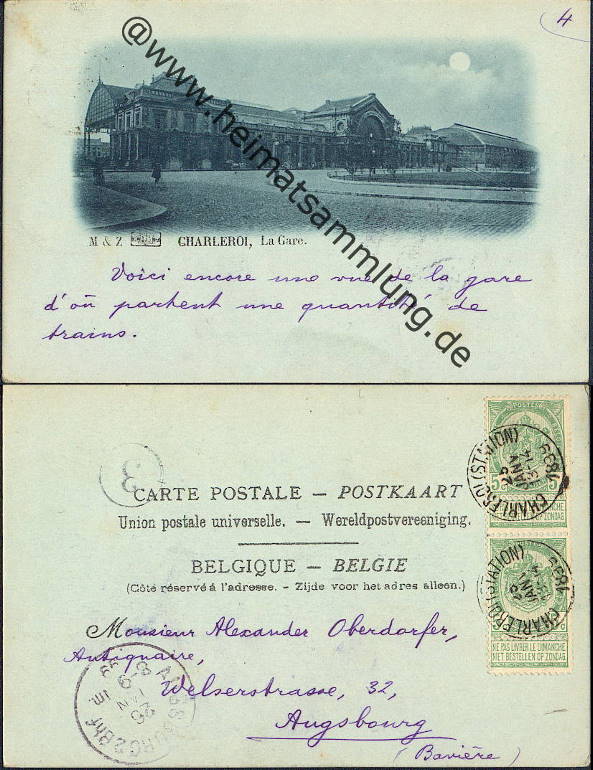 4
@www.heimatsammlung.de
M & Z CHARLEROI, La Gare.
Voici encore une vue de la gare
d'où partent une quantité de
trains.
3
CARTE POSTALE — POSTKAART
Union postale universelle. — Wereldpostvereeniging.
BELGIQUE — BELGIE
(Côté réservé à l'adresse. - Zijde voor het adres alleen.)
POSTES
5
NE PAS LIVRER LE DIMANCHE
NIET BESTELLEN OP ZONDAG
CHARLEROI (STATION)
1899
NE PAS LIVRER LE DIMANCHE
NIET BESTELLEN OP ZONDAG
CHARLEROI (STATION)
1899
Monsieur Alexander Oberdorfer,
Antiquaire,
Welserstrasse, 32,
Augsbourg
(Bavière)